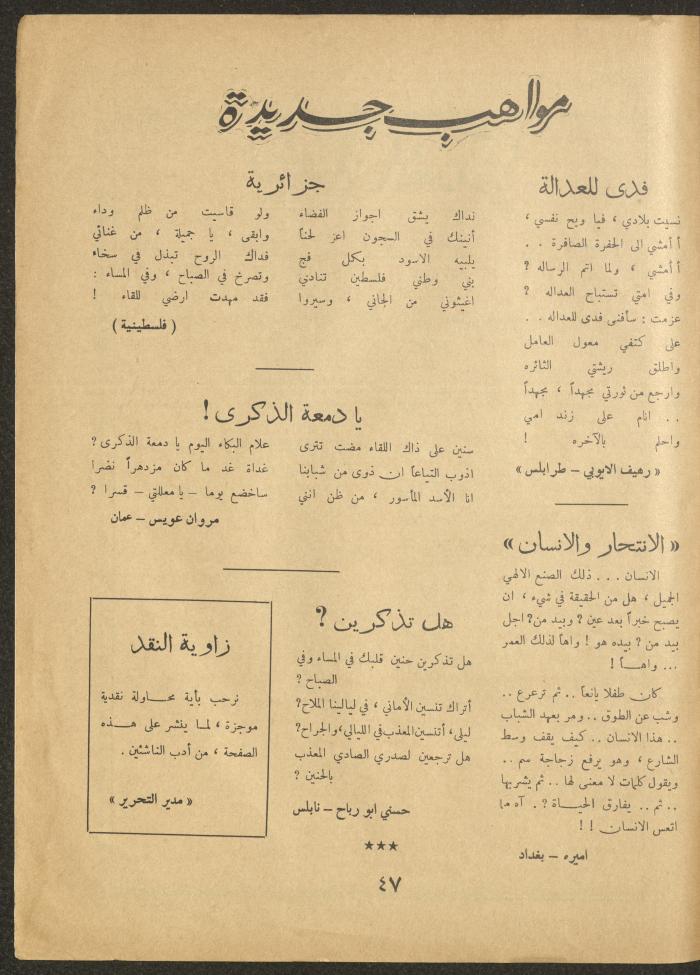 مواهب جديدة
فدى للعدالة
نسيت بلادي ، فيا ويح نفسي ،
أ أمشي الى الحفرة الصافرة . .
أ أمشي ، ولما اتم الرساله ؟
وفي امتي تستباح العداله ؟
عزمت : سأفنى فدى للعداله . .
على كتفي معول العامل
واطلق ريشتي الثائره
وارجع من ثورتي مجهداً ، مجهداً
. . انام على زند امي
واحلم بالآخره !
« رهيف الايوبي – طرابلس »
« الانتحار والانسان »
الانسان . . . ذلك الصنع الالهي
الجميل ، هل من الحقيقة في شيء ، ان
يصبح خبراً بعد عين ؟ وبيد من؟ اجل
بيد من ؟ بيده هو ! واهاً لذلك العمر
... واهـــاً !
كان طفلا يانعاً .. ثم ترعرع ..
وشب عن الطوق .. ومر بعهد الشباب
.. هذا الانسان .. كيف يقف وسط
الشارع ، وهو يرفع زجاجة سم ..
ويقول كلمات لا معنى لها .. ثم يشربها
.. ثم .. يفارق الحيـــاة ؟ . آه ما
اتعس الانسان ! !
اميره – بغداد
جزائرية
نداك يشق اجواز الفضاء ولو قاسيت من ظلم وداء
أنينك في السجون اعز لحناً وابقى ، يا جميلة ، من غنائي
يلبيه الاسود بكل فج فداك الروح تبذل في سخاء
بني وطني فلسطين تنادي وتصرخ في الصباح ، وفي المساء :
اغيثوني من الجاني ، وسيروا فقد مهدت ارضي للقاء !
( فلسطينية )
يا دمعة الذكرى !
سنين على ذاك اللقاء مضت تترى علام البكاء اليوم يا دمعة الذكرى ؟
اذوب التياعاً ان ذوى من شبابنا غداة غد ما كان مزدهراً نضرا
انا الأسد المأسور ، من ظن انني سأخضع يوما – يا معللتي – قسرا ؟
مروان عويس – عمان
هل تذكرين ؟
هل تذكرين حنين قلبك في المساء وفي
الصباح ؟
أتراك تنسين الأماني ، في ليالينا الملاح؟
ليلى، أتنسين المعذب في الليالي، والجراح؟
هل ترجعين لصدري الصادي المعذب
بالحنين ؟
حسني ابو رباح – نابلس
***
زاوية النقد
نرحب بأية محـــاولة نقدية
موجزة ، لمـا ينشر على هـــذه
الصفحة ، من أدب الناشئين .
« مدير التحرير »
٤٧